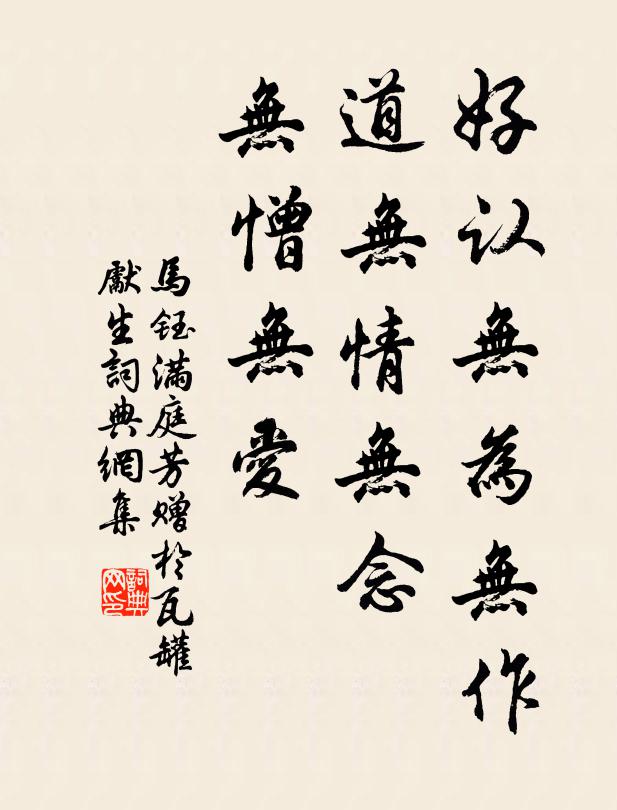 好认無為無作
道無情無念
無憎無愛
馬鈺滿庭芳赠於瓦罐
獻生詞典網集
詞典网印